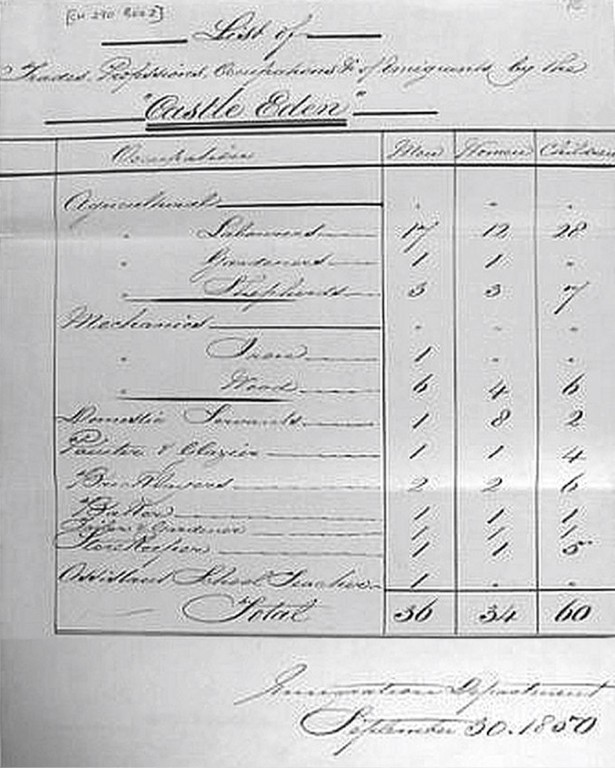 [CH 290 BOX 2]
List of
Trades, Professions, Occupations &c of Emigrants by the
"Castle Eden"
Occupation Men Women Children
Agricultural " " "
" Labourers 17 12 28
" Gardeners 1 1 "
" Shepherds 3 3 7
Mechanics " " "
" Iron 1 " "
" Wood 6 4 6
Domestic Servants 1 8 2
Painter & Glazier 1 1 4
2 2 6
1 1 1
& Gardener 1 1 1
Storekeeper 1 1 5
Assistant School Teacher 1 " "
Total 36 34 60
Immigration Department
September 30. 1850